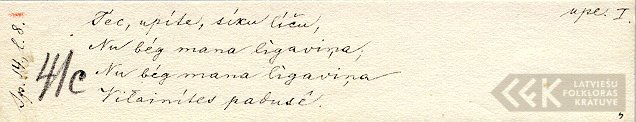 upe. I.
Tec, upīte, sīku līču,
Nu bēg mana līgaviņa,
Nu bēg mana līgaviņa
Vilainītes padusē.
41c
LATVIEŠU
FOLKLORAS
KRĀTUVE